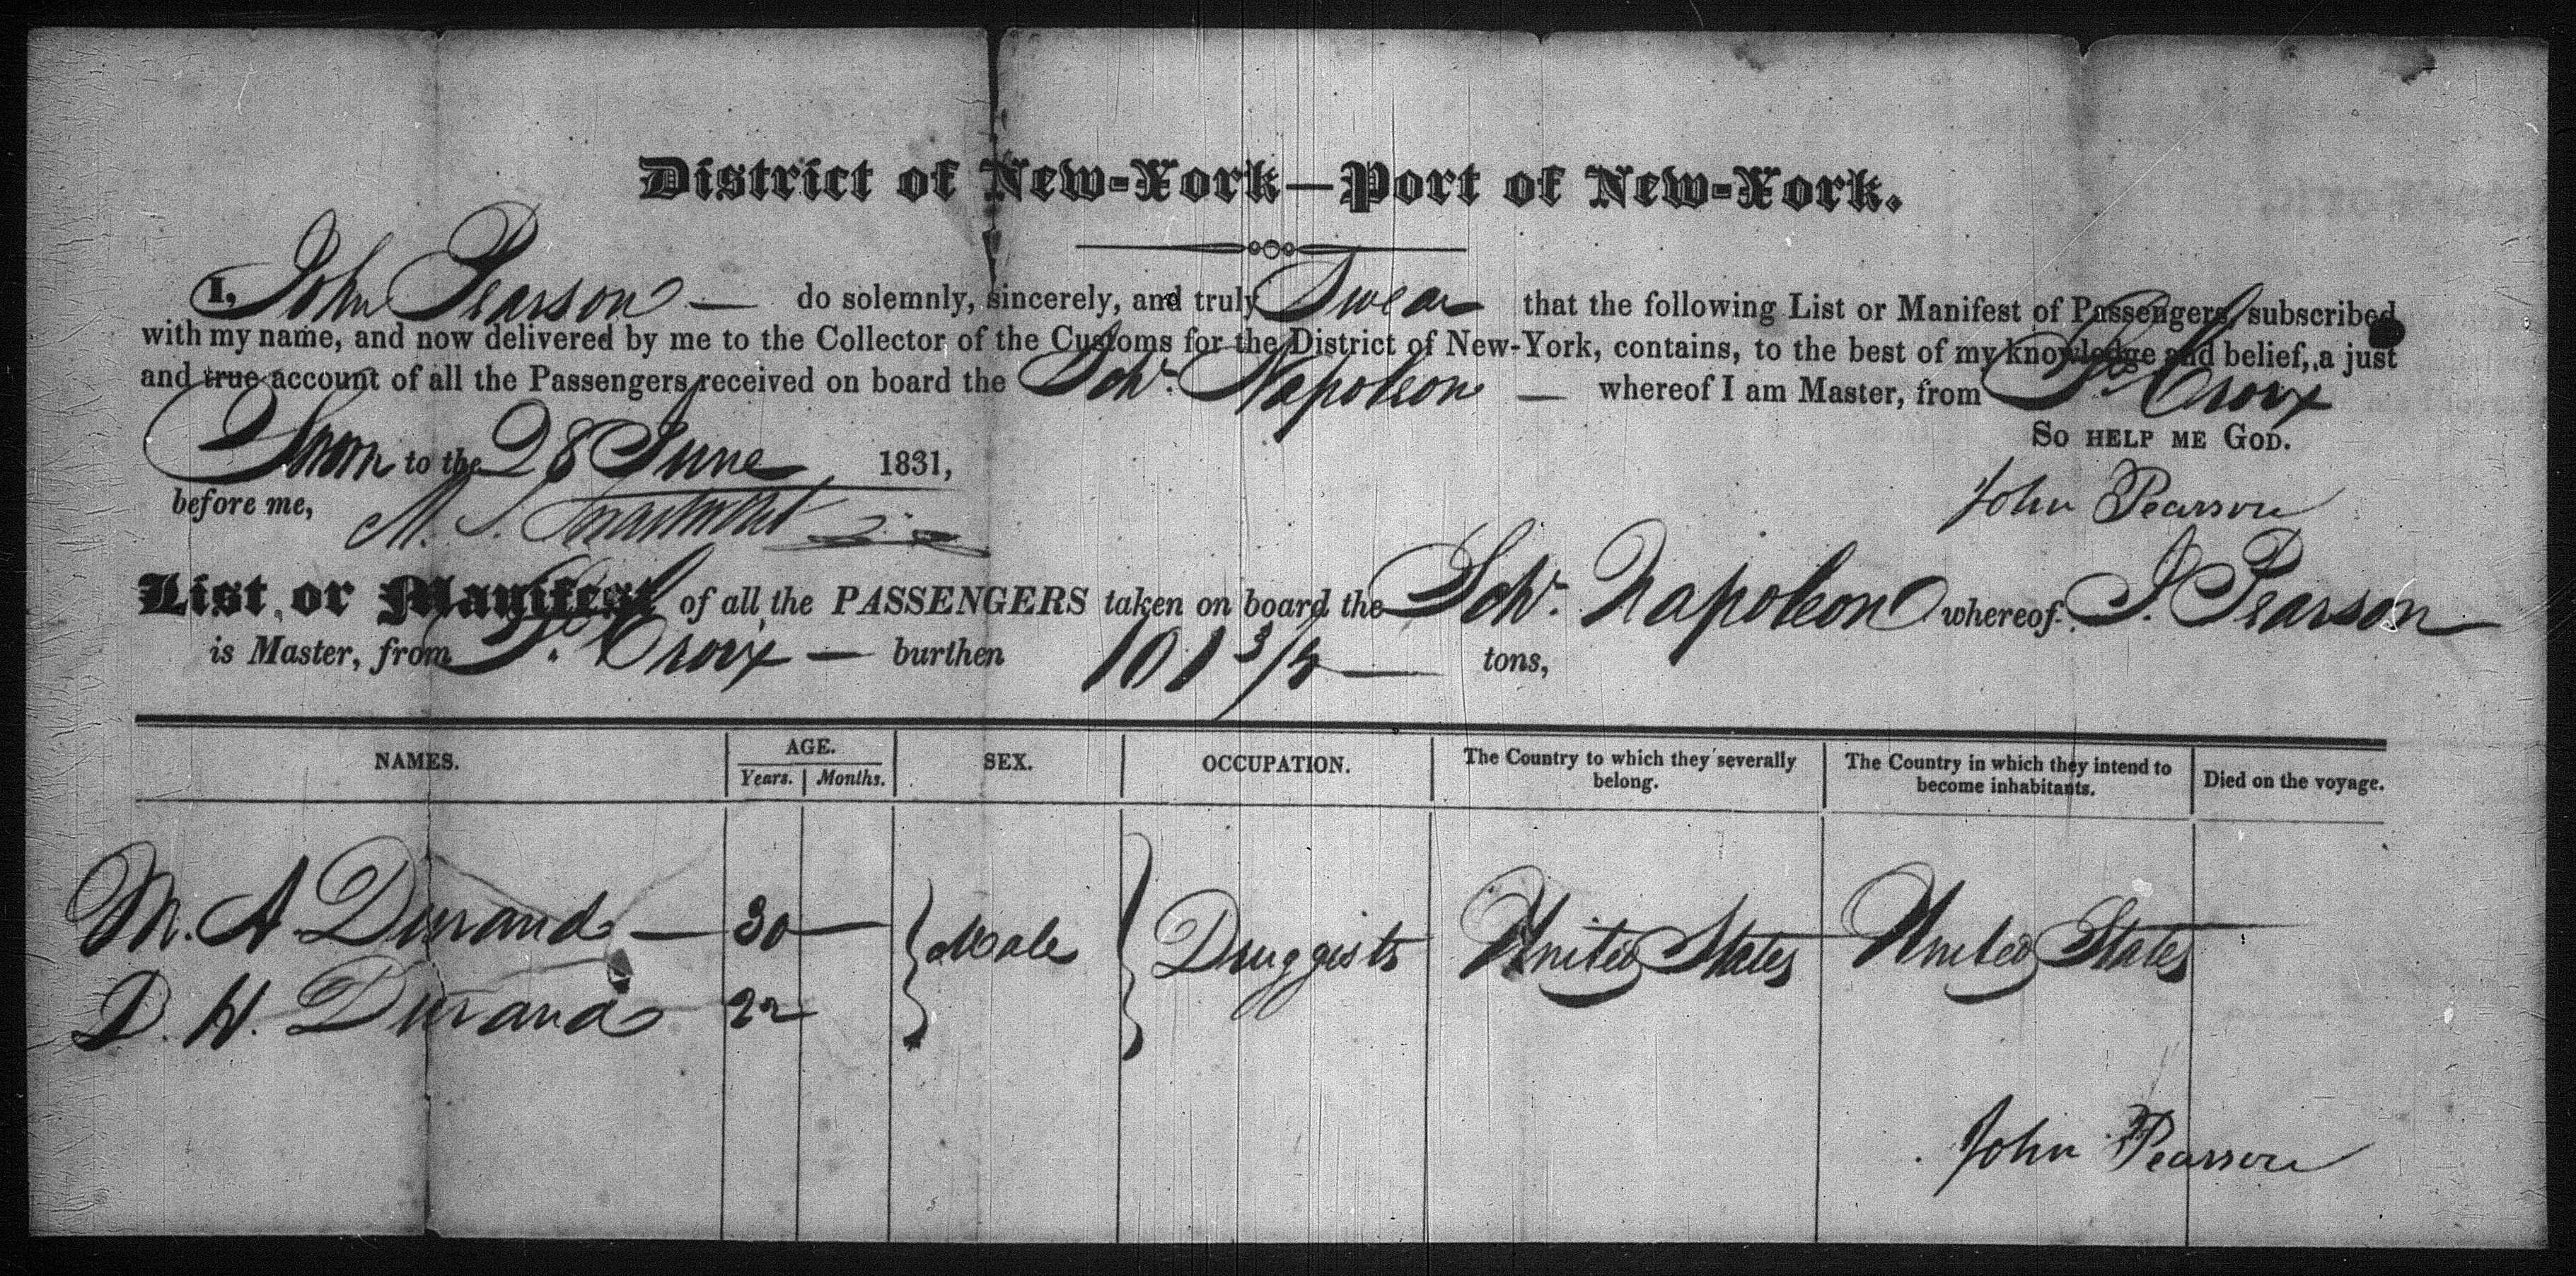 District of New-York—Port of New-York.
I, John Pearson — do solemnly, sincerely, and truly Swear that the following List or Manifest of Passengers, subscribed
with my name, and now delivered by me to the Collector of the Customs for the District of New-York, contains, to the best of my knowledge and belief, a just
and true account of all the Passengers received on board the Schr. Napoleon — whereof I am Master, from St. Croix
So help me God.
Sworn to the 28 June 1831,
John Pearson
before me, M. S.
List or Manifest of all the PASSENGERS taken on board the Schr. Napoleon whereof J. Pearson
is Master, from St. Croix — burthen 101 3/4 — tons,
NAMES. AGE. Years. Months. SEX. OCCUPATION. The Country to which they severally belong. The Country in which they intend to become inhabitants. Died on the voyage.
M. A. Durand — 30 — } Male } Druggists United States United States
D. H. Durand 22
John Pearson